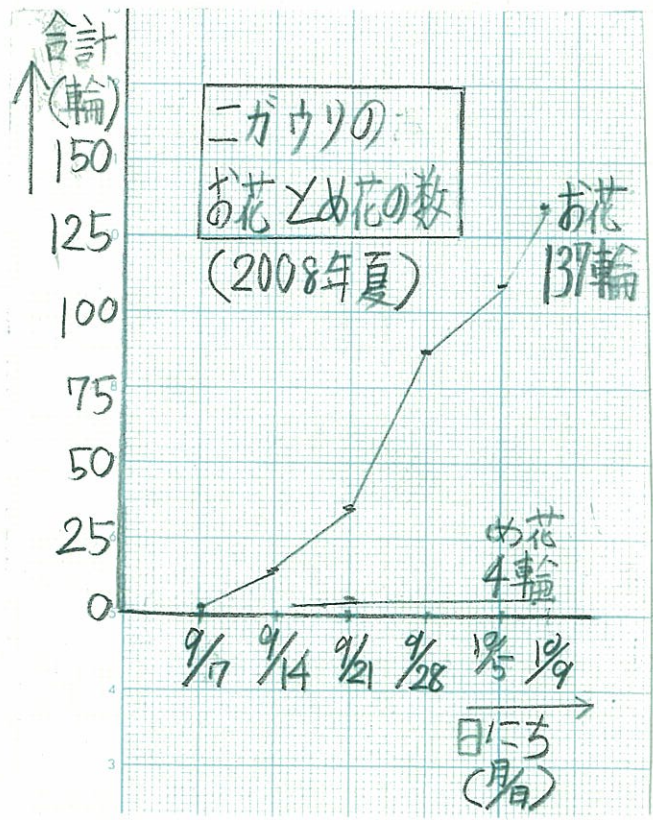 合計
(輪)
150
125
100
75
50
25
0
ニガウリの
お花とめ花の数
(2008年夏)
お花
137輪
め花
4輪
9/7 9/14 9/21 9/28 10/5 10/9
日にち
(月/日)
8
6
5
4
3